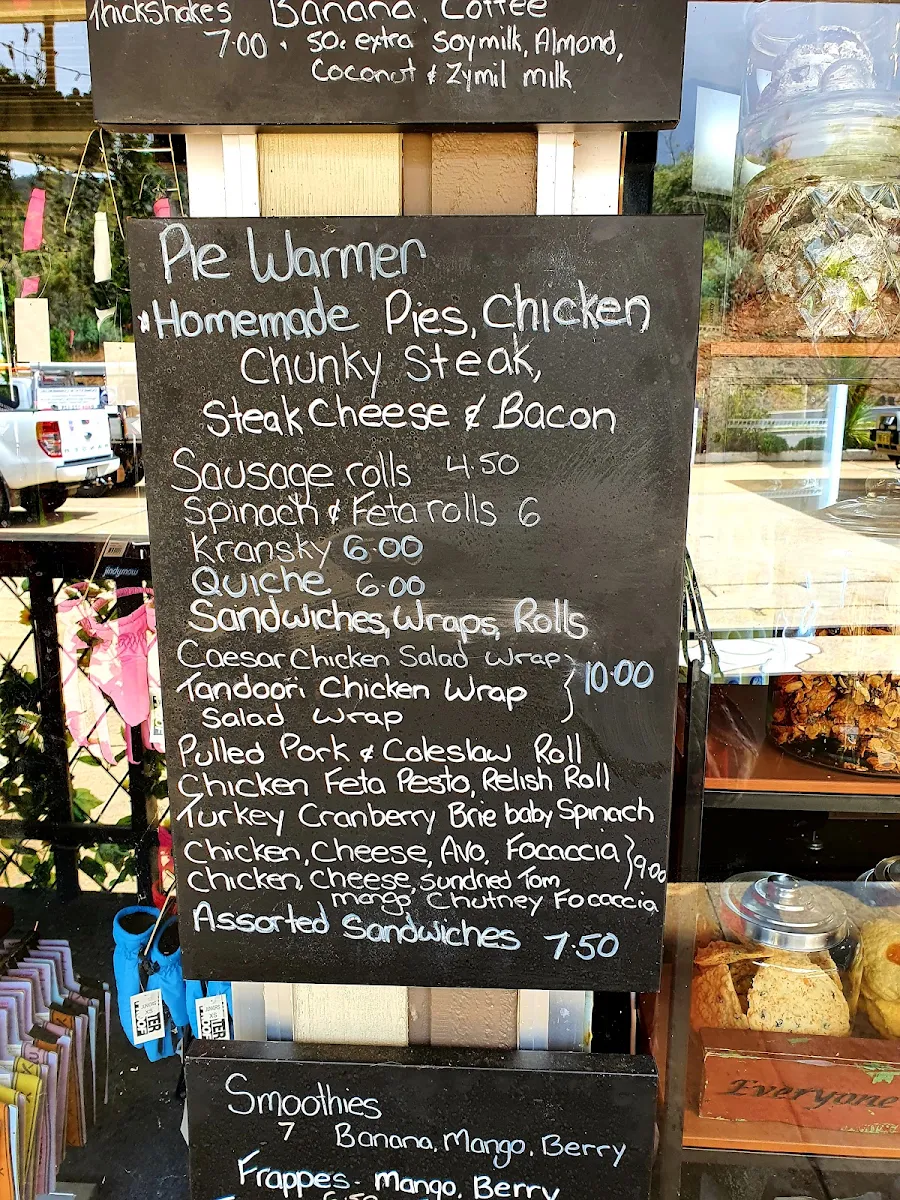 Thickshakes Banana, Coffee
7.00 • 50c extra Soymilk, Almond,
Coconut & Zymil milk
Pie Warmen
*Homemade Pies, Chicken
Chunky Steak,
Steak Cheese & Bacon
Sausage rolls 4.50
Spinach & Feta rolls 6
Kransky 6.00
Quiche 6.00
Sandwiches, Wraps, Rolls
Caesar Chicken Salad Wrap
Tandoori Chicken Wrap } 10.00
Salad Wrap
Pulled Pork & Coleslaw Roll
Chicken Feta Pesto, Relish Roll
Turkey Cranberry Brie baby Spinach
Chicken, Cheese, Avo. Focaccia } 9.00
Chicken, Cheese, Sundried Tom
mango Chutney Focaccia
Assorted Sandwiches 7.50
Smoothies
7 Banana, Mango, Berry
Frappes - Mango, Berry
6.50
jindymow
Everyone